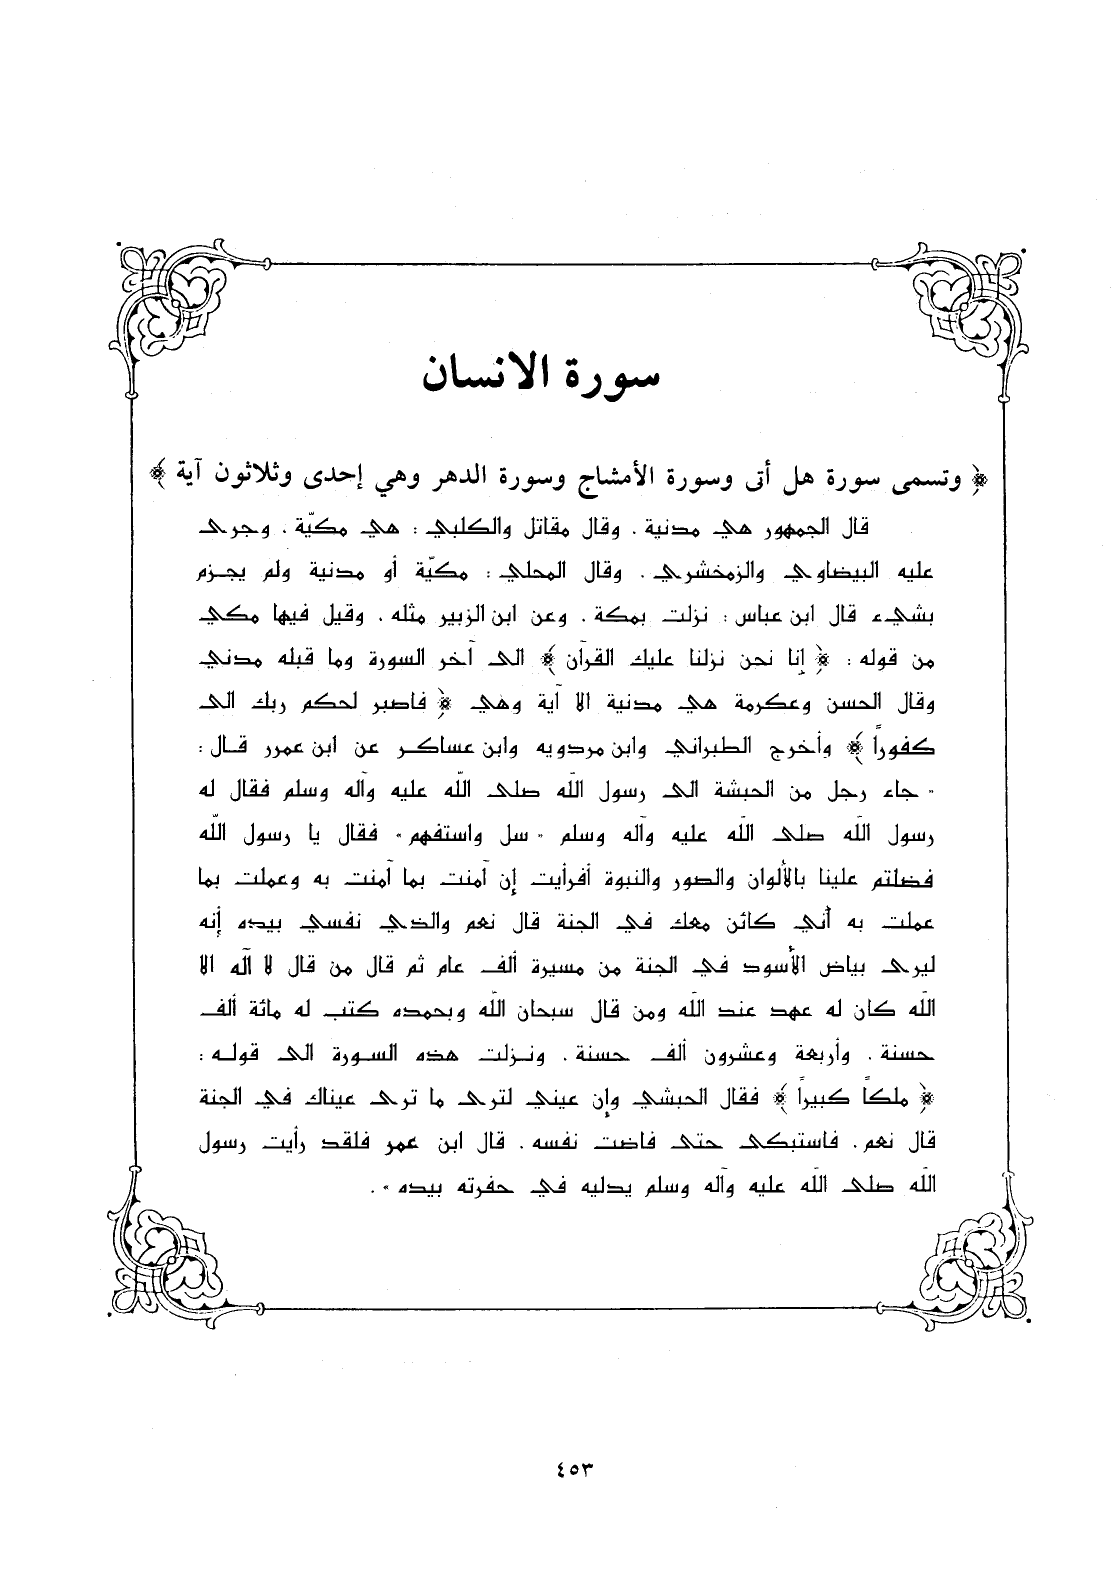 سورة الانسان
﴿ وتسمى سورة هل أتى وسورة الأمشاج وسورة الدهر وهي إحدى وثلاثون آية ﴾
قال الجمهور هي مدنية ، وقال مقاتل والكلبي : هي مكيّة ، وجرى
عليه البيضاوي والزمخشري ، وقال المحلي : مكيّة أو مدنية ولم يجزم
بشيء قال ابن عباس : نزلت بمكة ، وعن ابن الزبير مثله ، وقيل فيها مكي
من قوله : ﴿ إنا نحن نزلنا عليك القرآن ﴾ الى آخر السورة وما قبله مدني
وقال الحسن وعكرمة هي مدنية الا آية وهي ﴿ فاصبر لحكم ربك الى
كفوراً ﴾ وأخرج الطبراني وابن مردويه وابن عساكر عن ابن عمرر قال :
" جاء رجل من الحبشة الى رسول الله صلى الله عليه وآله وسلم فقال له
رسول الله صلى الله عليه وآله وسلم " سل واستفهم " فقال يا رسول الله
فضلتم علينا بالألوان والصور والنبوة أفرأيت إن آمنت بما آمنت به وعملت بما
عملت به أني كائن معك في الجنة قال نعم والذي نفسي بيده إنه
ليرى بياض الأسود في الجنة من مسيرة ألف عام ثم قال من قال لا آله الا
الله كان له عهد عند الله ومن قال سبحان الله وبحمده كتب له مائة ألف
حسنة ، وأربعة وعشرون ألف حسنة ، ونزلت هذه السورة الى قوله :
﴿ ملكاً كبيراً ﴾ فقال الحبشي وإن عيني لترى ما ترى عيناك في الجنة
قال نعم ، فاستبكى حتى فاضت نفسه ، قال ابن عمر فلقد رأيت رسول
الله صلى الله عليه وآله وسلم يدليه في حفرته بيده " .
٤٥٣